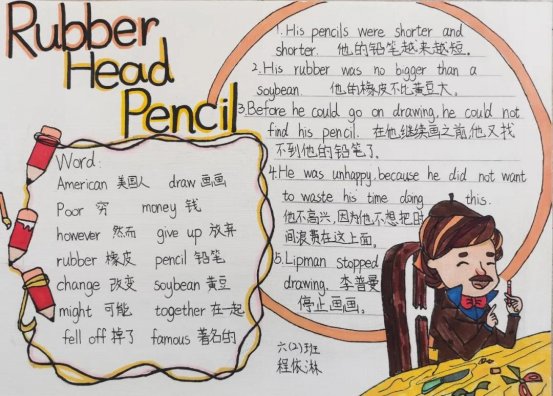 Rubber
Head
Pencil
Word:
American 美国人 draw 画画
Poor 穷 money 钱
however 然而 give up 放弃
rubber 橡皮 pencil 铅笔
change 改变 soybean 黄豆
might 可能 together 在一起
fell off 掉了 famous 著名的
1. His pencils were shorter and
shorter. 他的铅笔越来越短。
2. His rubber was no bigger than a
soybean 他的橡皮不比黄豆大。
3. Before he could go on drawing, he could not
find his pencil. 在他继续画之前,他又找
不到他的铅笔了。
4. He was unhappy, because he did not want
to waste his time dong this.
他不高兴,因为他不想把时
间浪费在这上面。
5. Lipman stopped
drawing. 李普曼
停止画画。
六(2)班
程依淋